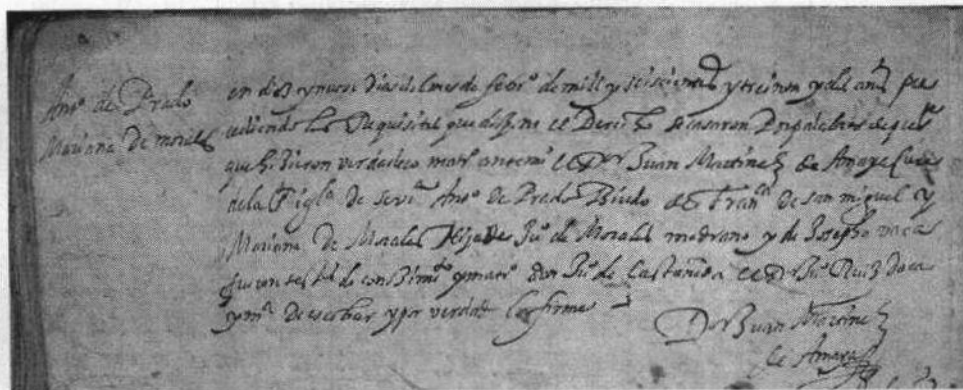 Anto de Prado
Mariana de morales
en diez y nueve dias del mes de febro de mill y seiscientos y treinta y dos anos pre
cediendo los Requisitos que dispone el Derecho se casaron Por palabras de presente
que hicieron verdadero matro ante mi el Dor Juan Martinez de Amaya Cura
de la Igla de Anto de Prado Biudo de Franca de san miguel y
Mariana de Morales Hija de Juo de Morales medrano y de Josepha vaca
fueron tests de conosimto y matro don Juo de Castañeda el Dor Juo Ruiz
y de escobar y por verdad lo firme
Dor Juan Martinez
de Amaya